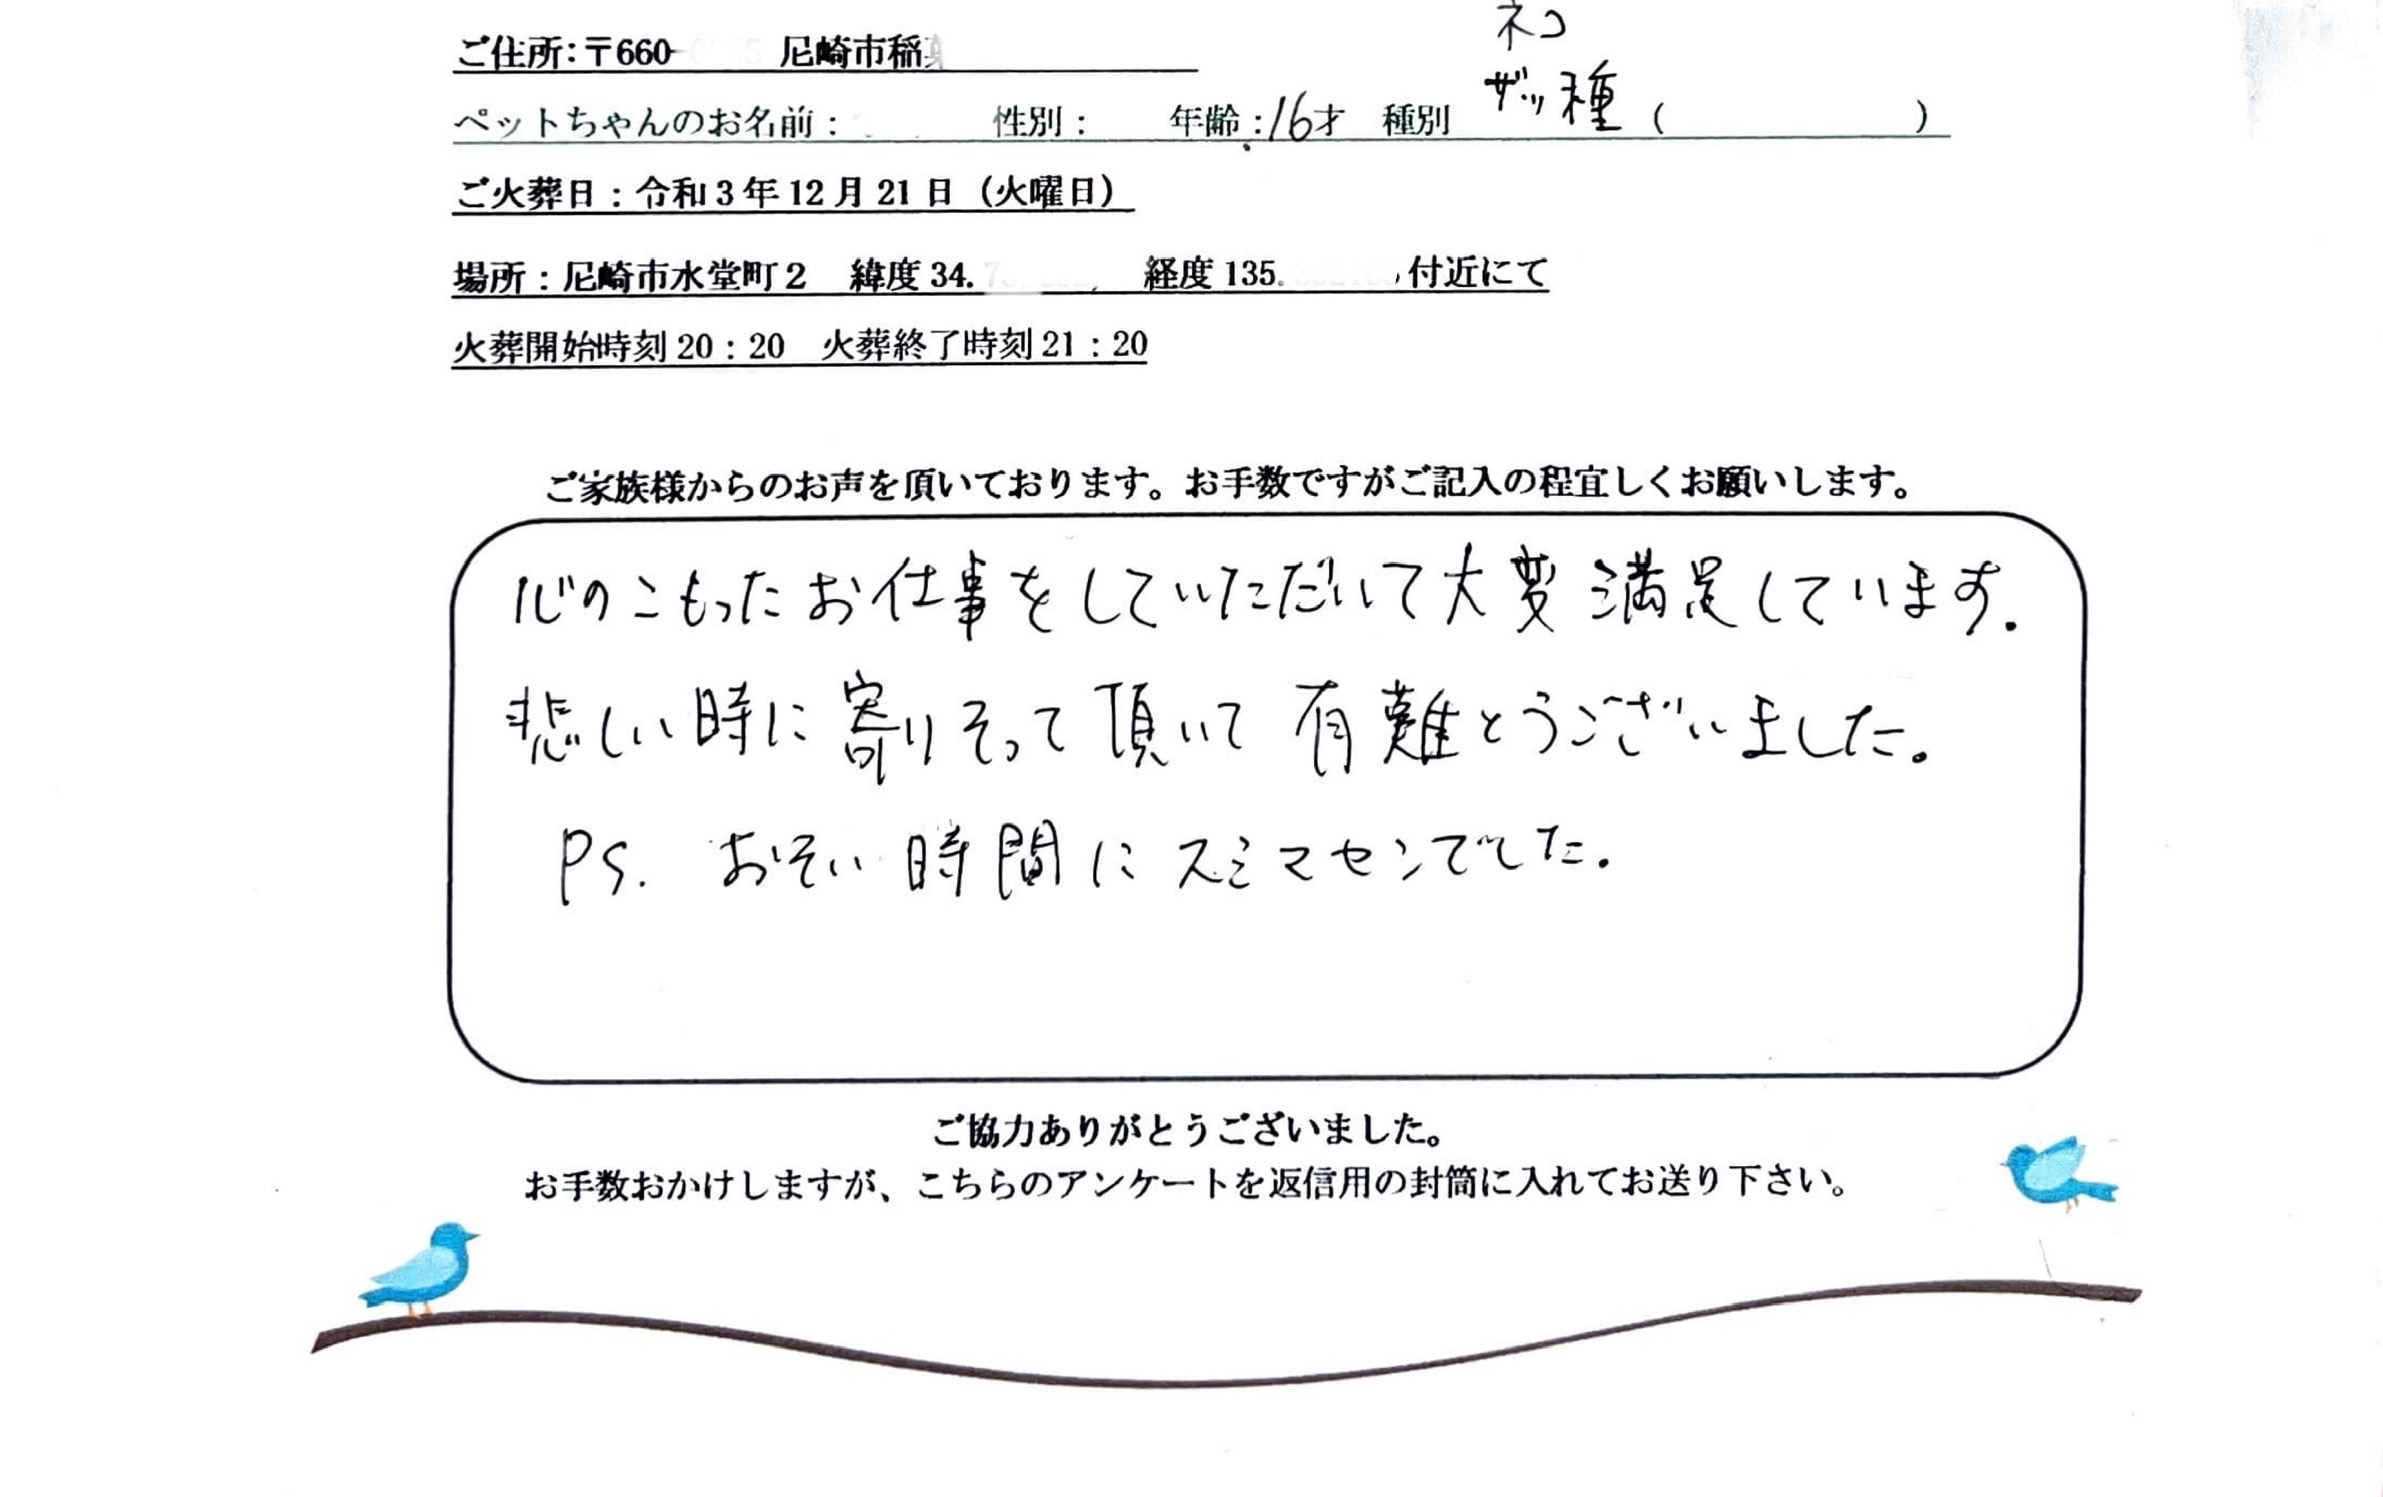 ネコ
ご住所:〒660- 尼崎市稲
ペットちゃんのお名前: 性別: 年齢:16才 種別 ザッ種 ( )
ご火葬日:令和3年12月21日(火曜日)
場所:尼崎市水堂町2 緯度34.7 経度135. 付近にて
火葬開始時刻20:20 火葬終了時刻21:20
ご家族様からのお声を頂いております。お手数ですがご記入の程宜しくお願いします。
心のこもったお仕事をしていただいて大変満足しています.
悲しい時に寄りそって頂いて有難とうございました。
PS. おそい時間にスミマセンでした.
ご協力ありがとうございました。
お手数おかけしますが、こちらのアンケートを返信用の封筒に入れてお送り下さい。